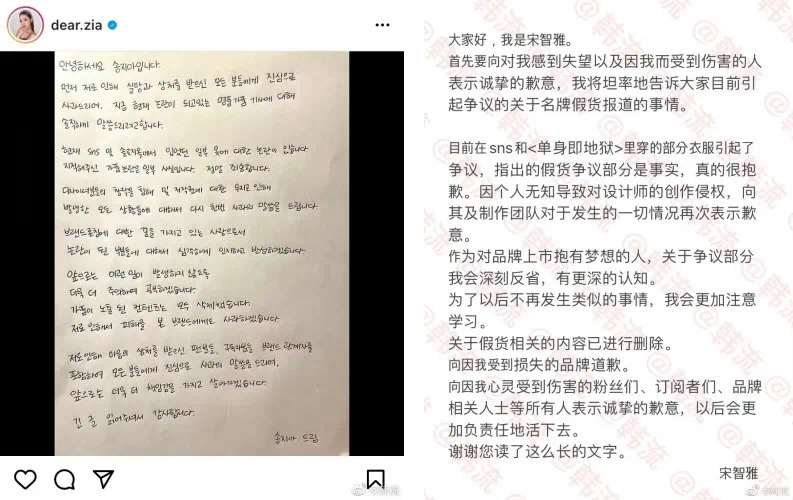 dear.zia
안녕하세요 송지아입니다.
먼저 저로 인해 실망과 상처를 받으신 모든 분들에게 진심으로
사과드리며, 지금 현재 논란이 되고있는 명품가품 기사에 대해
솔직하게 말씀드리려고합니다.
현재 SNS 및 솔로지옥에서 입었던 일부 옷에 대한 논란이 있습니다.
지적해주신 가품논란은 일부 사실입니다. 정말 죄송합니다.
디자이너분들의 창작물 침해 및 저작권에 대한 무지로 인해
발생한 모든 상황들에 대해서 다시 한번 사과의 말씀을 드립니다.
브랜드론칭에 대한 꿈을 가지고 있는 사람으로서
논란이 된 부분들에 대해서 심각하게 인지하고 반성하겠습니다.
앞으로는 이런 일이 발생하지 않도록
더욱 더 주의하며 공부하겠습니다.
가품이 노출 된 컨텐츠는 모두 삭제했습니다.
저로 인해서 피해를 본 브랜드에게도 사과하겠습니다.
저로인해 마음의 상처를 받으신 팬분들, 구독자분들, 브랜드 관계자을
포함하여 모든분들에게 진심으로 사과의 말씀을 드리며,
앞으로는 더욱 더 책임감을 가지고 살아가겠습니다.
긴 글 읽어주셔서 감사합니다.
송지아 드림
大家好，我是宋智雅。
首先要向对我感到失望以及因我而受到伤害的人
表示诚挚的歉意，我将坦率地告诉大家目前引
起争议的关于名牌假货报道的事情。
目前在sns和<单身即地狱>里穿的部分衣服引起了
争议，指出的假货争议部分是事实，真的很抱
歉。因个人无知导致对设计师的创作侵权，向
其及制作团队对于发生的一切情况再次表示歉
意。
作为对品牌上市抱有梦想的人，关于争议部分
我会深刻反省，有更深的认知。
为了以后不再发生类似的事情，我会更加注意
学习。
关于假货相关的内容已进行删除。
向因我受到损失的品牌道歉。
向因我心灵受到伤害的粉丝们、订阅者们、品牌
相关人士等所有人表示诚挚的歉意，以后会更
加负责任地活下去。
谢谢您读了这么长的文字。
宋智雅
@韩流